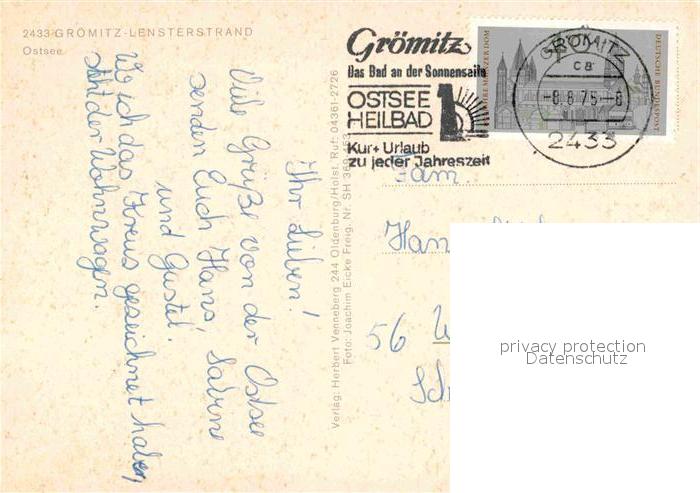 2433 GRÖMITZ-LENSTERSTRAND
Ostsee
Ihr Lieben!
Viele Grüße von der Ostsee
senden Euch Hans, Sabine
und Gustel.
Wo ich das Kreuz gezeichnet habe,
steht der Wohnwagen.
Verlag: Herbert Venneberg 244 Oldenburg/Holst. Ruf: 04361-2726
Foto: Joachim Eicke Freig. Nr. SH
Grömitz
Das Bad an der Sonnenseite
OSTSEE
HEILBAD
Kur + Urlaub
zu jeder Jahreszeit
GRÖMITZ
CB
-8.8.75-8
2433
MAINZER DOM
DEUTSCHE BUNDESPOST
Fam.
56
privacy protection
Datenschutz